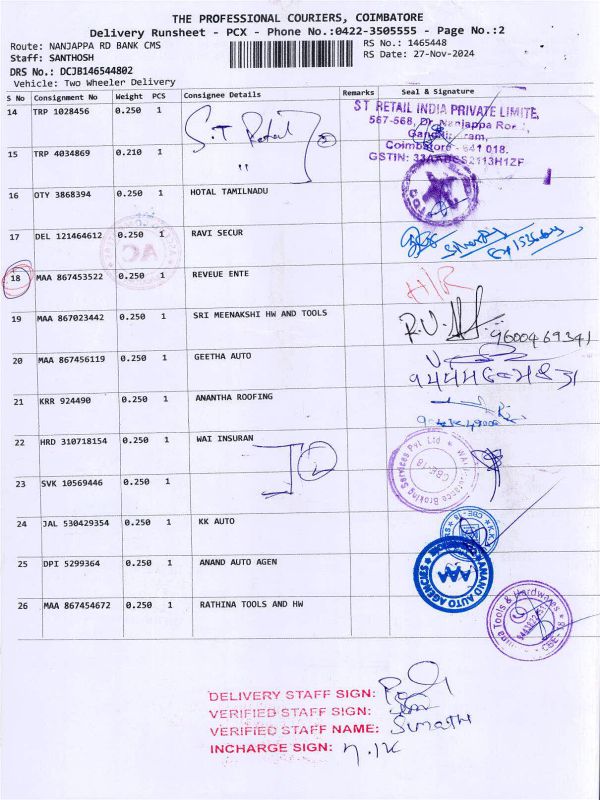 THE PROFESSIONAL COURIERS, COIMBATORE
Delivery Runsheet - PCX - Phone No.:0422-3505555 - Page No.:2
Route: NANJAPPA RD BANK CMS RS No.: 1465448
Staff: SANTHOSH RS Date: 27-Nov-2024
DRS No.: DCJB146544802
Vehicle: Two Wheeler Delivery
S No Consignment No Weight PCS Consignee Details Remarks Seal & Signature
14 TRP 1028456 0.250 1 S.T Retail 2
ST RETAIL INDIA PRIVATE LIMITE,
567-568, Dr. Nanjappa Road,
Gandhipuram,
Coimbatore - 641 018.
15 TRP 4034869 0.210 1 "
16 OTY 3868394 0.250 1 HOTAL TAMILNADU
17 DEL 121464612 0.250 1 RAVI SECUR
AC
18 MAA 867453522 0.250 1 REVEUE ENTE H/R
19 MAA 867023442 0.250 1 SRI MEENAKSHI HW AND TOOLS 9600469341
20 MAA 867456119 0.250 1 GEETHA AUTO
21 KRR 924490 0.250 1 ANANTHA ROOFING
22 HRD 310718154 0.250 1 WAI INSURAN 2
Broking Services Pvt Ltd
CBE-18
23 SVK 10569446 0.250 1
24 JAL 530429354 0.250 1 KK AUTO
25 DPI 5299364 0.250 1 ANAND AUTO AGEN
ANAND AUTO AGENCIES
AAA
26 MAA 867454672 0.250 1 RATHINA TOOLS AND HW
Tools & Hardwares
CBE-18
DELIVERY STAFF SIGN:
VERIFIED STAFF SIGN:
VERIFIED STAFF NAME:
INCHARGE SIGN: